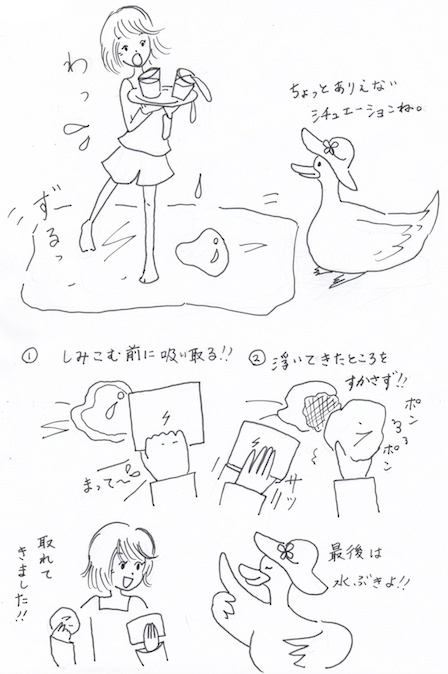 わっ
ちょっとありえない
シチュエーションね。
ずー
るっ
① しみこむ前に吸い取る!!
② 浮いてきたところを
すかさず!!
まって〜
サッ
ポン
ポン
取れて
きました!!
最後は
水ぶきよ!!